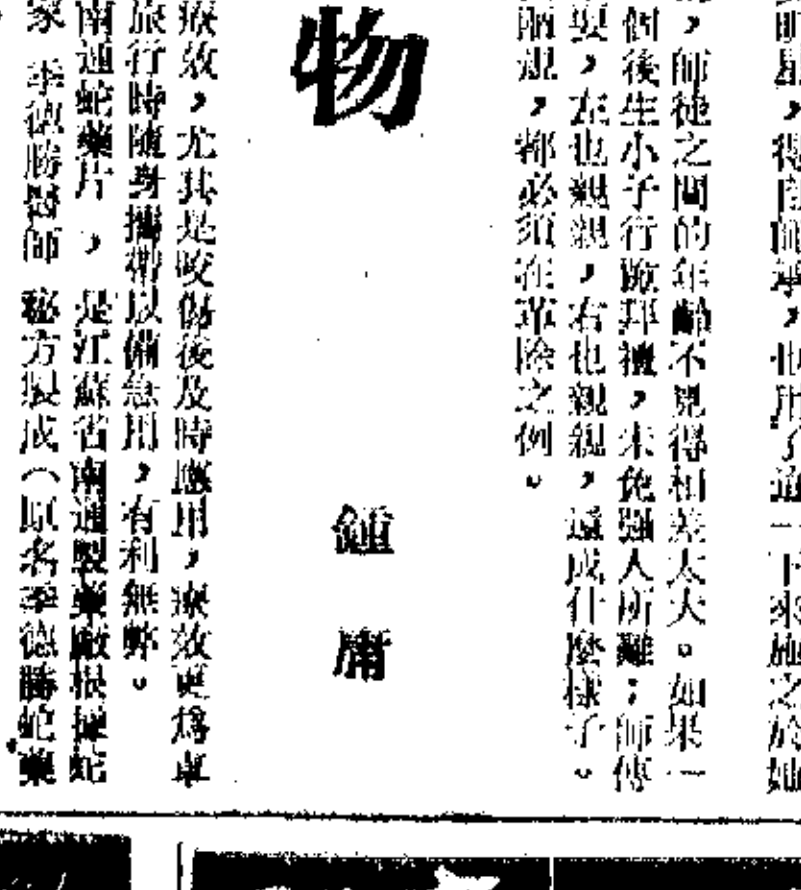 明星，得自師承，他用了這一下來施之於她
，師徒之間的年齡不見得相差太大。如果一
個後生小子行跪拜禮，未免強人所難；師傅
要，左也親親，右也親親，還成什麼樣子。
陋規，都必須在革除之例。
物
鍾庸
療效，尤其是咬傷後及時應用，療效更為卓
旅行時隨身攜帶以備急用，有利無弊。
南通蛇藥片，是江蘇省南通製藥廠根據蛇
家 季德勝醫師 秘方製成（原名季德勝蛇藥